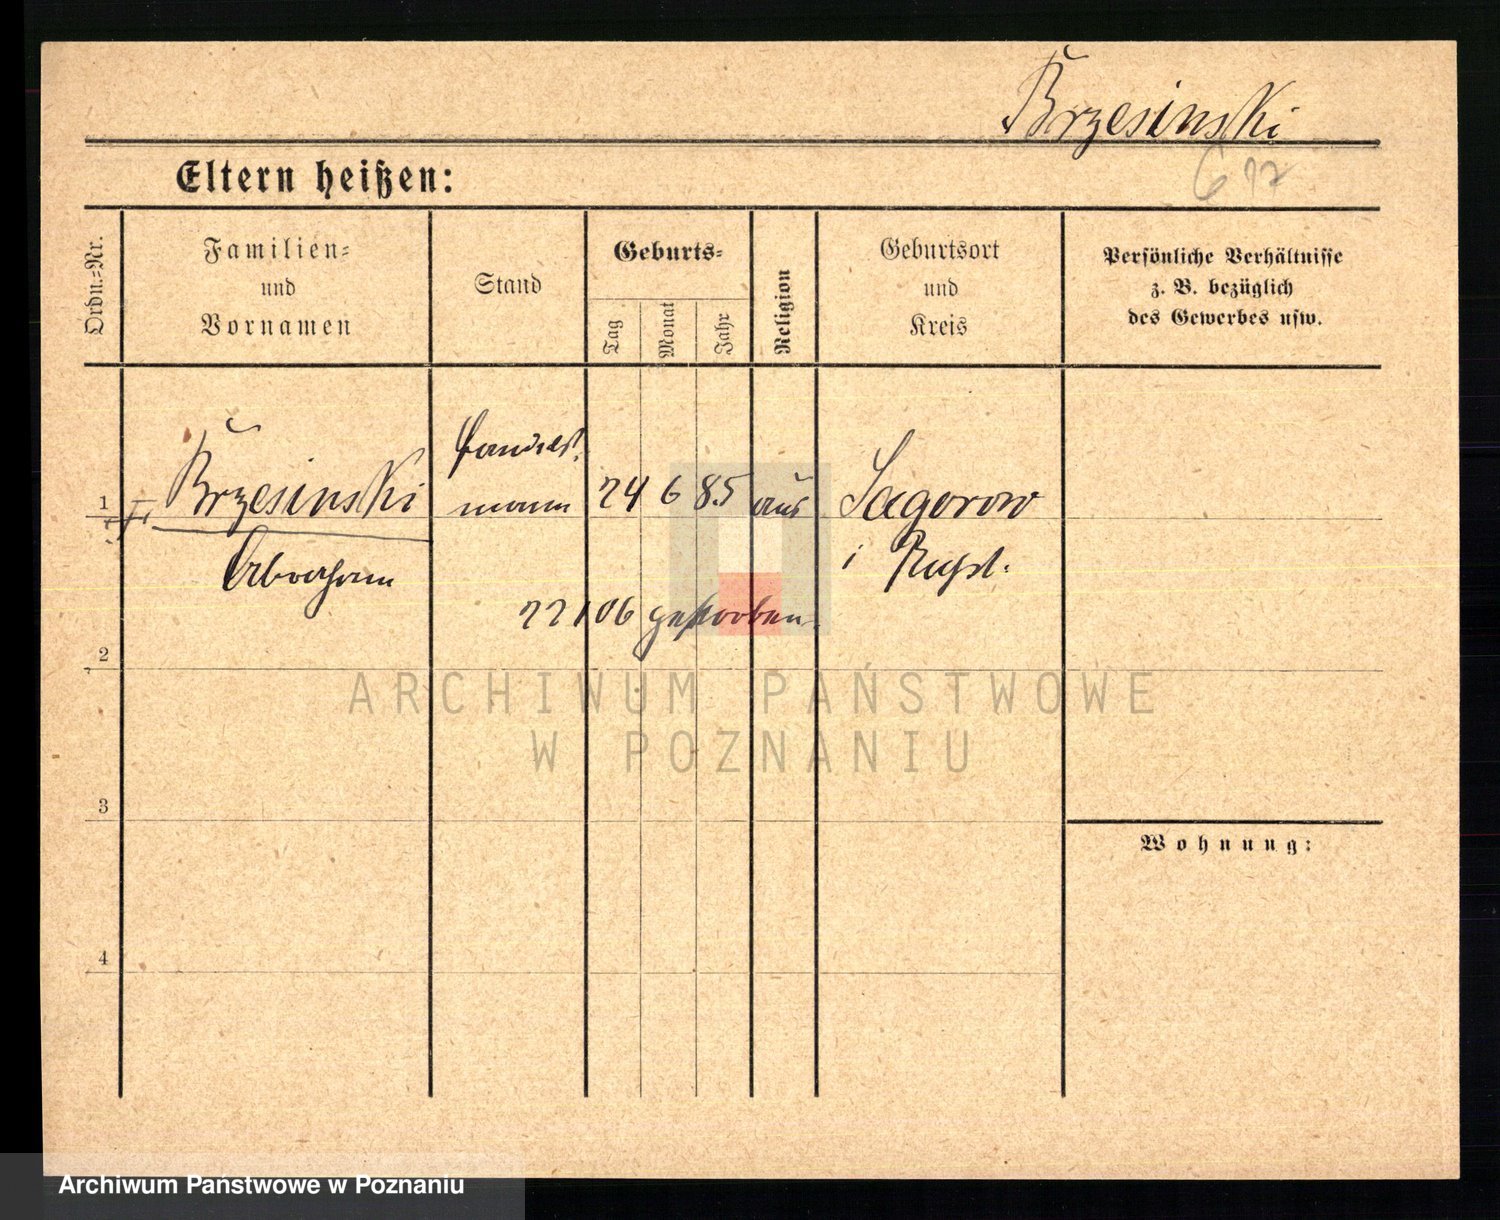 Brzesinski
Eltern heißen:
Ordn.-Nr.
Familien-
und
Vornamen
Stand
Geburts-
Tag
Monat
Jahr
Religion
Geburtsort
und
Kreis
Persönliche Verhältnisse
z. B. bezüglich
des Gewerbes usw.
1
Brzesinski
Abraham
Handels-
mann
24 6 85
Sagorow
i Rußl.
06 gestorben.
2
ARCHIWUM PAŃSTWOWE
W POZNANIU
3
Wohnung:
4
Archiwum Państwowe w Poznaniu